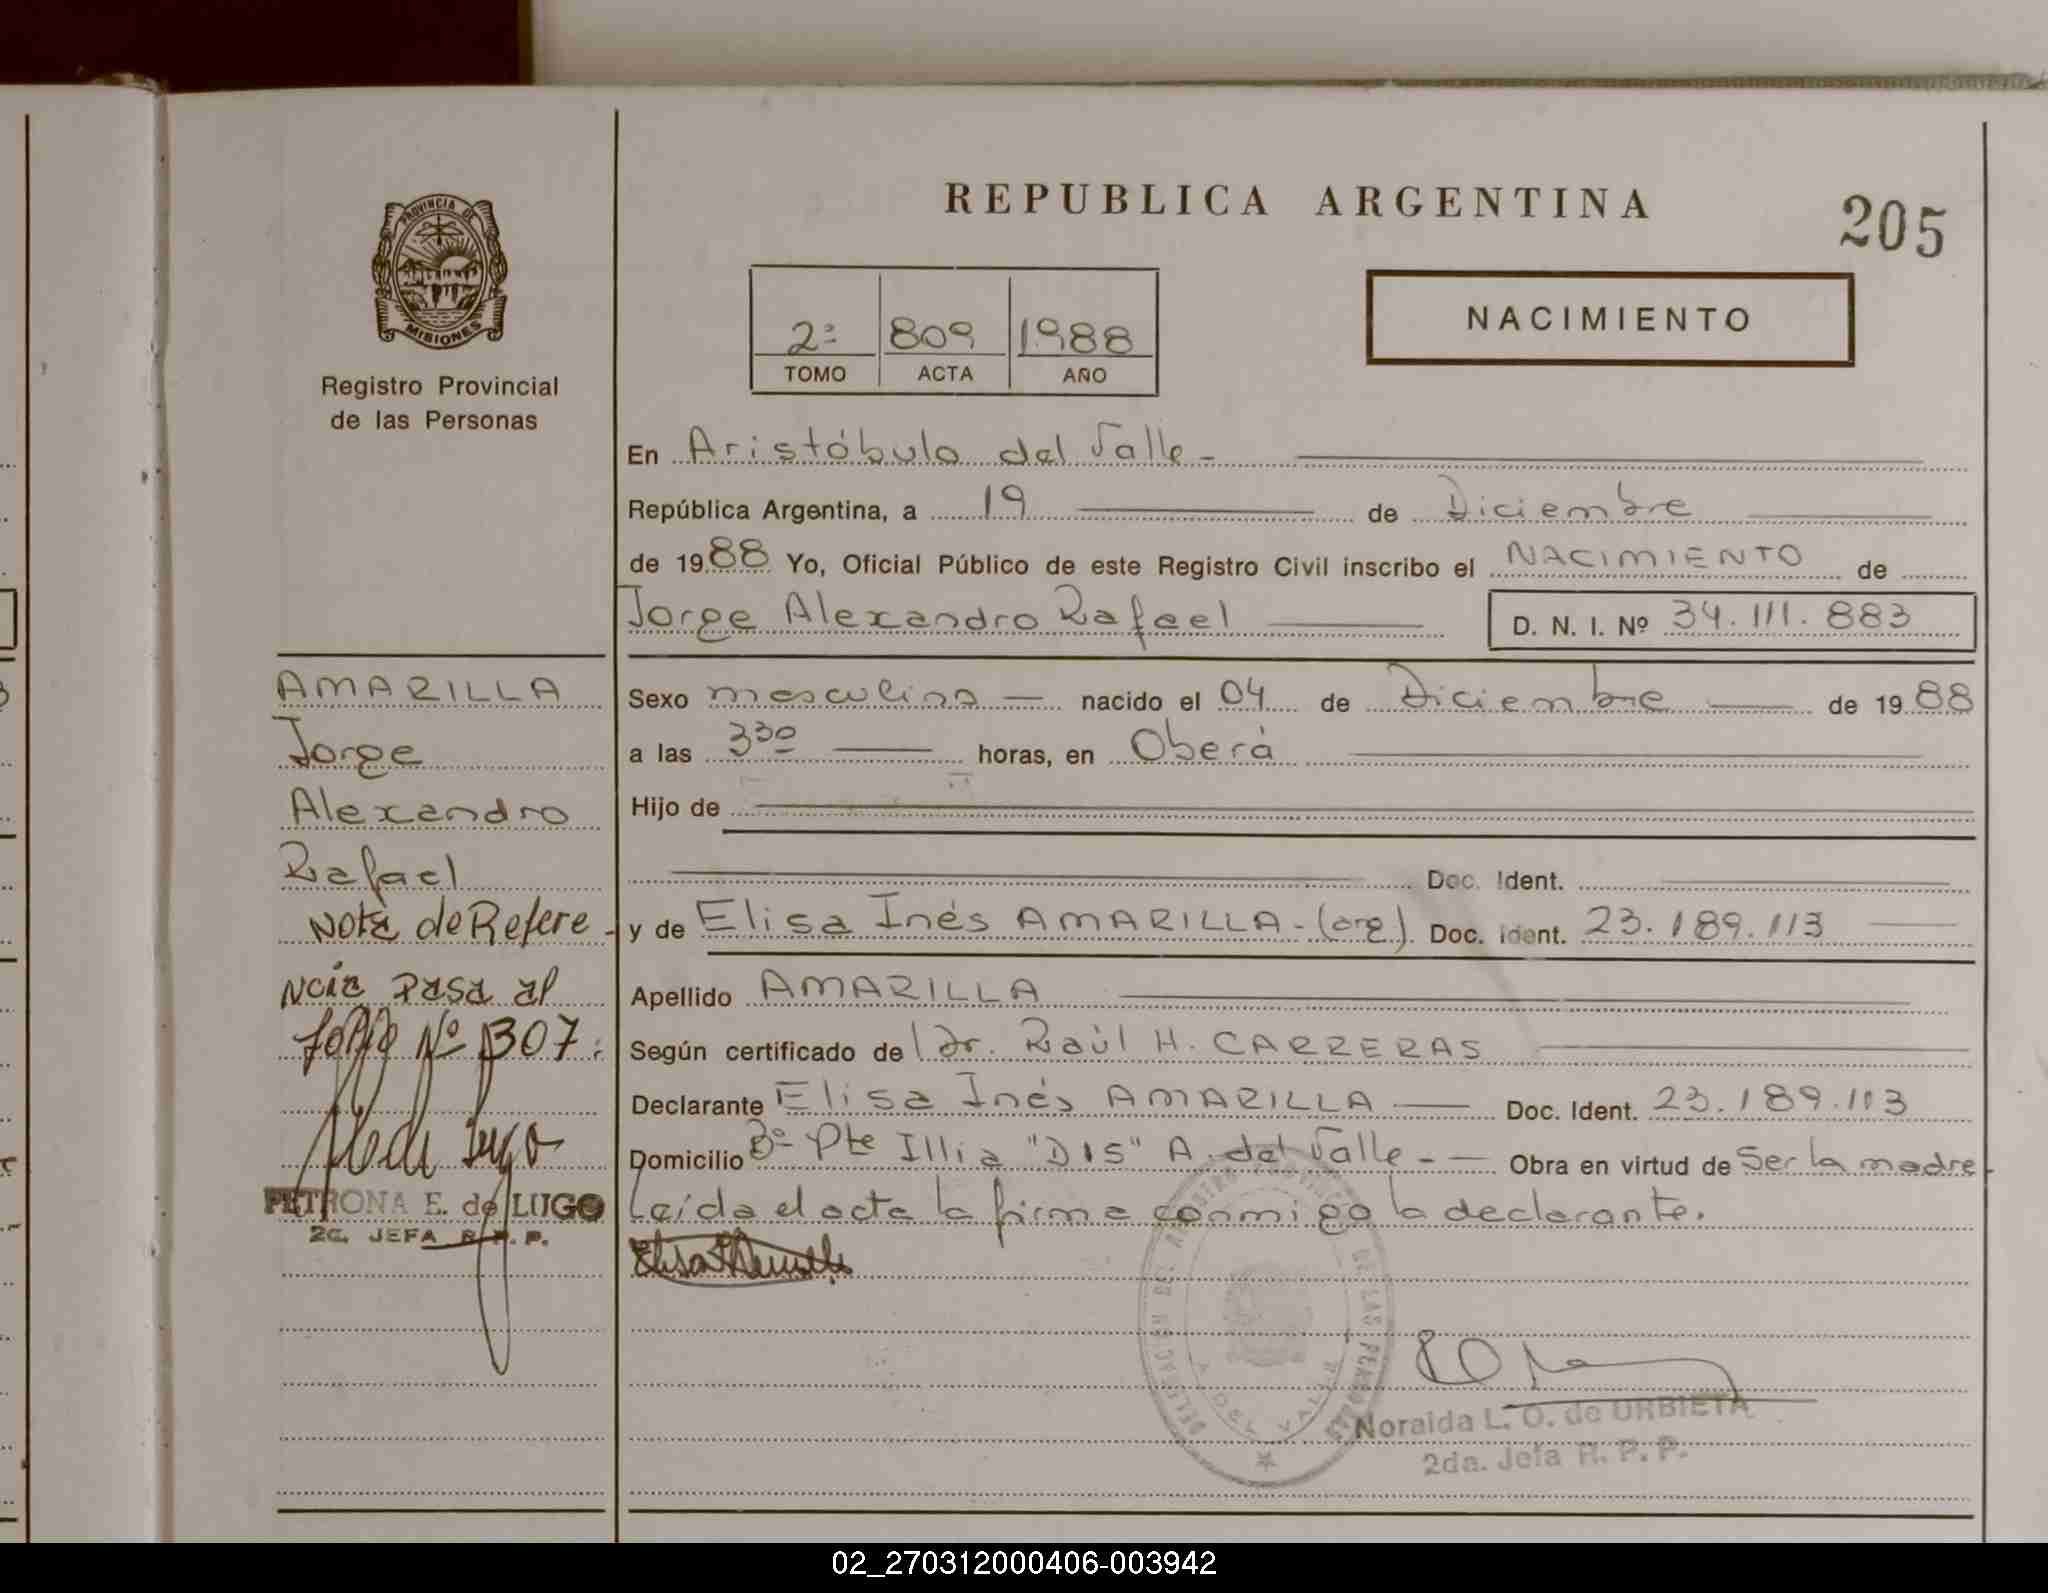 REPUBLICA ARGENTINA
205
PROVINCIA DE
MISIONES
Registro Provincial
de las Personas
2º 809 1988
TOMO ACTA AÑO
NACIMIENTO
En Aristóbulo del Valle -
República Argentina, a 19 de Diciembre
de 1988 Yo, Oficial Público de este Registro Civil inscribo el NACIMIENTO de
Jorge Alexandro Rafael D. N. I. Nº 34.111.883
Sexo masculino - nacido el 04 de Diciembre de 1988
a las 3³⁰ horas, en Oberá
Hijo de
Doc. Ident.
y de Elisa Inés AMARILLA - (arg). Doc. Ident. 23.189.113
Apellido AMARILLA
Según certificado de Dr. Raúl H. CARRERAS
Declarante Elisa Inés AMARILLA Doc. Ident. 23.189.113
Domicilio Bº Pte Illia "D15" A. del Valle - Obra en virtud de Ser la madre
Leída el acta la firma conmigo la declarante.
AMARILLA
Jorge
Alexandro
Rafael
Nota de Refere -
ncia Pasa al
folio Nº 307.
PETRONA E. de LUGO
2a. JEFA R. P. P.
DELEGACION DEL REGISTRO PROVINCIAL DE LAS PERSONAS
Noralda L. O. de URBIETA
2da. Jefa R. P. P.
02_270312000406-003942